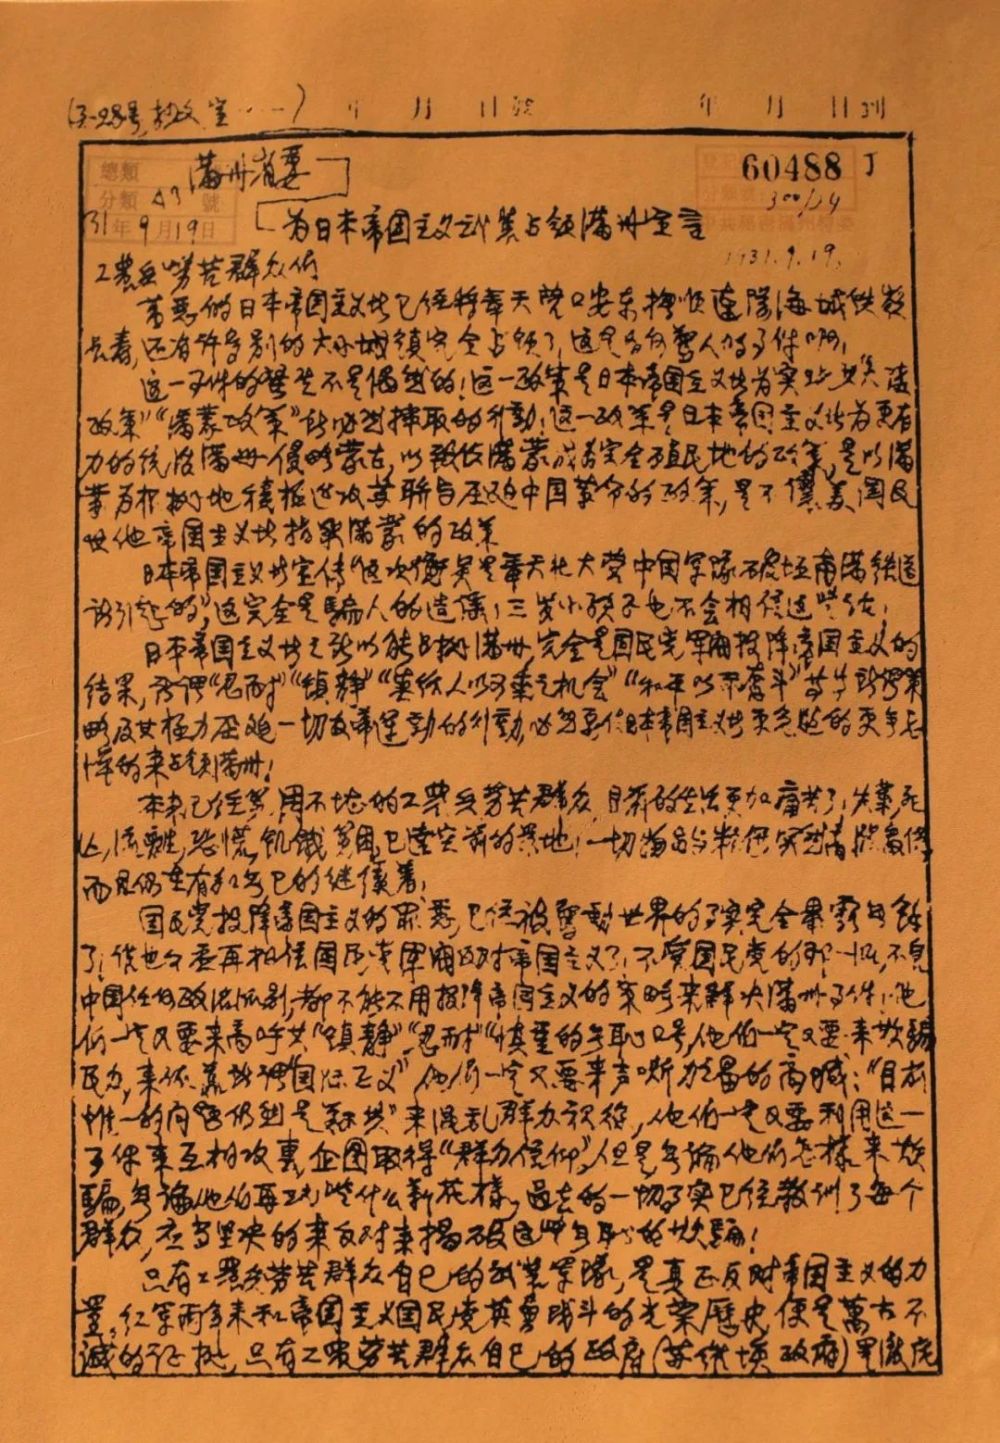 年 月 日 年 月 日到
總類
分類 43 號
31年9月19日
满州省委
60488 J
300/24
为日本帝国主义武装占领满州宣言
1931.9.19.
工农兵劳苦群众们
万恶的日本帝国主义此已经将奉天营口安东抚顺辽阳海城铁岭
长春,还有许多别的大小城镇完全占领了,这是多么惊人的事件啊!
这一事件的发生不是偶然的!这一政策是日本帝国主义者为实现其大陆
政策""满蒙政策"所必然采取的行动!这一政策是日本帝国主义者为更有
力的统治满州侵略蒙古,以致使满蒙成为完全殖民地的政策,是以满
蒙为根据地积极进攻苏联与压迫中国革命的政策,是不让美国及
其他帝国主义者指染满蒙的政策
日本帝国主义者宣传"这次冲突是奉天北大营中国军队破坏南满铁道
所引起的",这完全是骗人的造谣,三岁小孩子也不会相信这些话!
日本帝国主义者之所以能占据满州,完全是国民党军阀投降帝国主义的
结果,所谓"忍耐""镇静""莫给人以可乘之机会""和平以示奋斗"等等的策
略及其极力压迫一切反帝运动的行动,必然要使日本帝国主义者更急进的更无忌
惮的来占领满州!
本来已经穷困不堪的工农兵劳苦群众,目前的生活更加痛苦了,失业死
亡,流离,恐慌,饥饿贫困已达空前的景地!一切物品与粮价突然高涨数倍,
而且仍在有加无已的继续着!
国民党投降帝国主义的罪恶,已经被惊动世界的事实完全暴露无余
了!谁也不会再相信国民党军阀反对帝国主义了!不管国民党的那一派,不管
中国任何政治派别,都不能不用投降帝国主义的策略来解决满州事件!他
们一定又要来高呼其"镇静""忍耐""慎重的无耻口号,他们一定又要来欺骗
民众,来依靠所谓"国际正义"他们一定又要来声嘶力竭的高喊:"目前
惟一的问题仍到是剿共"来混乱群众视线,他们一定又要利用这一
事件来互相攻裏,企图取得"群众信仰",但是无论他们怎样来欺
骗,无论他们再玩些什么新花样,过去的一切事实已经教训了每个
群众,应当坚决的来反对来揭破这些无耻的欺骗!
只有工农兵劳苦群众自己的武装军队,是真正反对帝国主义的力
量,红军两年来和帝国主义国民党英勇战斗的光荣历史便是万古不
灭的证据,只有工农劳苦群众自己的政府(苏维埃政府)是彻底